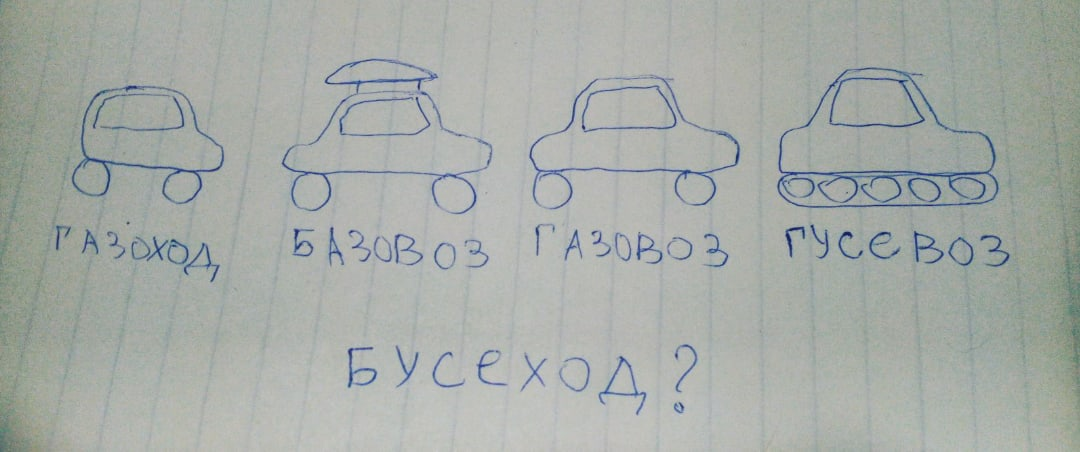 ГАЗОХОД БАЗОВОЗ ГАЗОВОЗ ГУСЕВОЗ
БУСЕХОД?